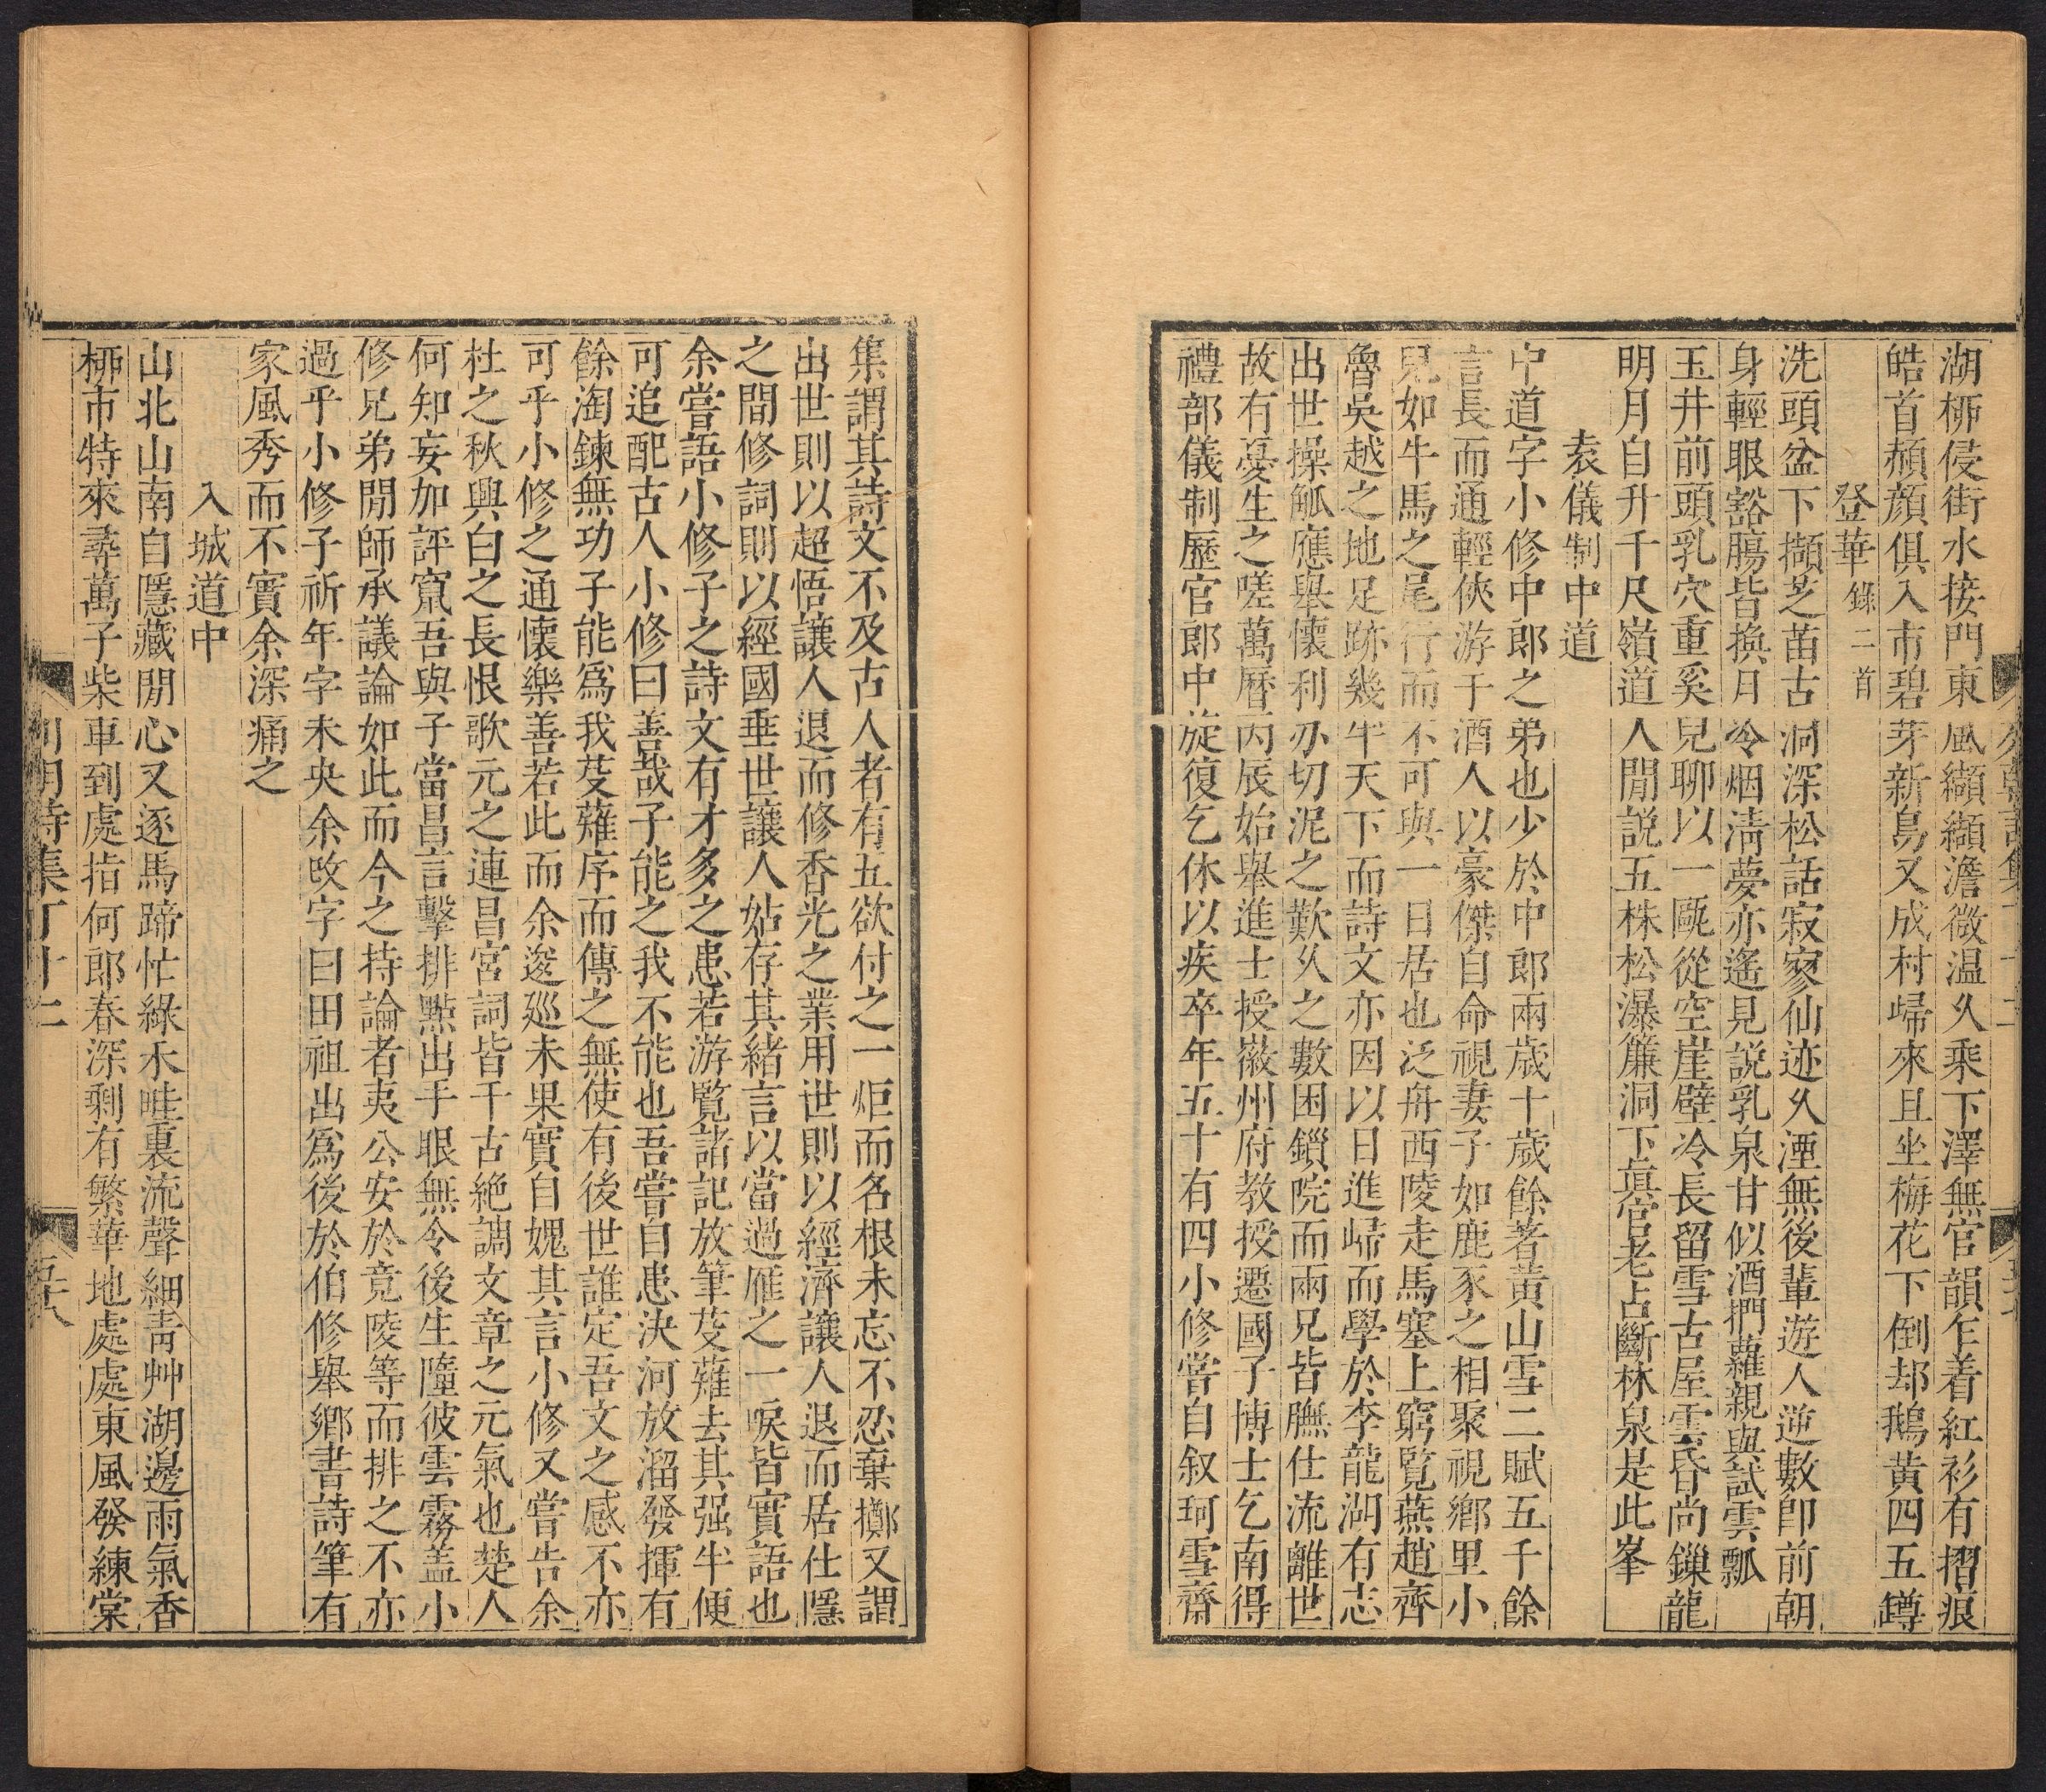 湖桺侵街水接門東風纈纈澹微温乆乘下澤無官韻乍着紅衫有摺痕
皓首頳顔俱入市碧芽新島又成村歸來且坐梅花下倒却鵝黄四五罇
登華錄二首
洗頭盆下擷芝苗古洞深松話寂寥仙迹乆湮無後輩遊人逆數卽前朝
身輕眼豁腸皆換月冷烟淸夢亦遙見說乳泉甘似酒捫蘿親與試雲瓢
玉井前頭乳穴重奚兒聊以一甌從空崖壁冷長留雪古屋雲昏尚鏁龍
明月自升千尺嶺道人閒說五株松瀑簾洞下眞官老占斷林泉是此峯
袁儀制中道
中道字小修中郎之弟也少於中郎兩歲十歲餘著黃山雪二賦五千餘
言長而通輕俠游于酒人以豪傑自命視妻子如鹿豕之相聚視鄉里小
兒如牛馬之尾行而不可與一日居也泛舟西陵走馬塞上窮覧燕趙齊
魯吳越之地足跡幾半天下而詩文亦因以日進歸而學於李龍湖有志
出世操觚應舉懷利刃切泥之歎乆之數困鎖院而兩兄皆膴仕流離世
故有憂生之嗟萬曆丙辰始舉進士授徽州府教授遷國子博士乞南得
禮部儀制歷官郎中旋復乞休以疾卒年五十有四小修嘗自叙珂雪齋
集謂其詩文不及古人者有五欲付之一炬而名根未忘不忍棄擲又謂
出世則以超悟讓人退而修香光之業用世則以經濟讓人退而居仕隱
之間修詞則以經國垂世讓人姑存其緒言以當過雁之一唳皆實語也
余嘗語小修子之詩文有才多之患若游覧諸記放筆芟薙去其强半便
可追配古人小修曰善哉子能之我不能也吾嘗自患決河放溜發揮有
餘淘鍊無功子能爲我芟薙序而傳之無使有後世誰定吾文之感不亦
可乎小修之通懷樂善若此而余逡廵未果實自媿其言小修又嘗告余
杜之秋興白之長恨歌元之連昌宮詞皆千古絶調文章之元氣也楚人
何知妄加評竄吾與子當昌言擊排點出手眼無令後生墮彼雲霧盖小
修兄弟閒師承議論如此而今之持論者夷公安於竟陵等而排之不亦
過乎小修子祈年字未央余改字曰田祖出爲後於伯修舉鄉書詩筆有
家風秀而不實余深痛之
入城道中
山北山南自隱藏閒心又逐馬蹄忙綠禾畦裏流聲細靑艸湖邊雨氣香
桺市特來尋萬子柴車到處指何郎春深剩有繁華地處處東風發練棠
列朝詩集丁十二
五十八